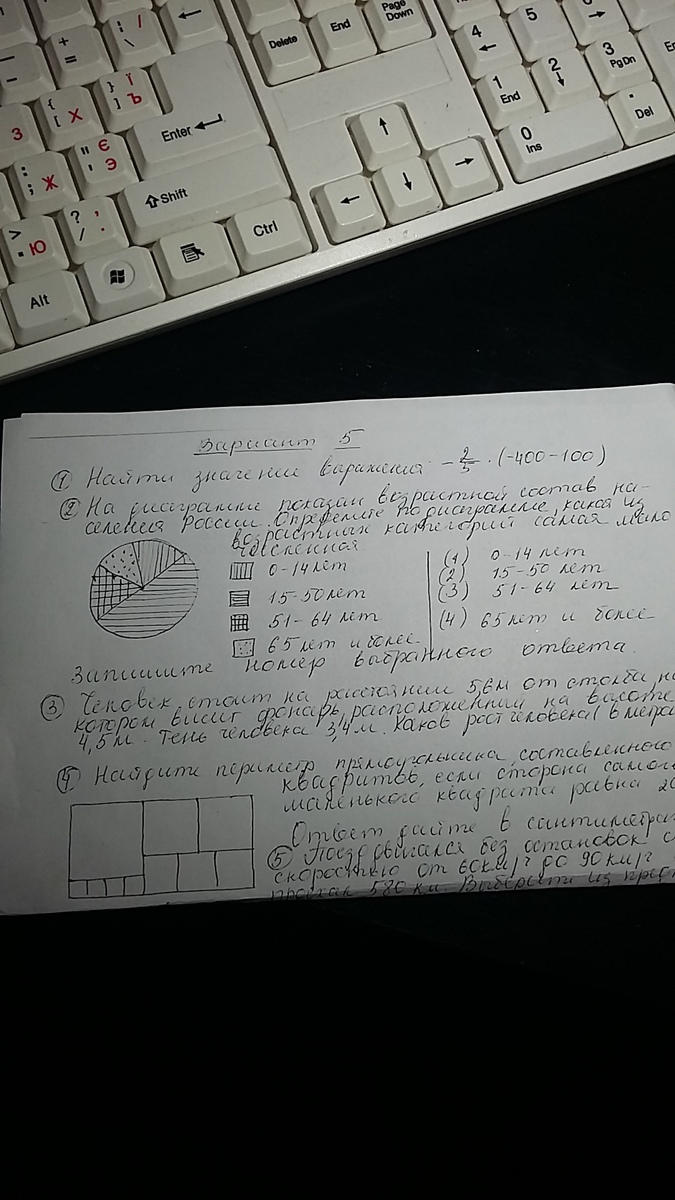 Page Down
End
Delete
← + = : / \
4 ← 5 →
1 End 2 ↓ 3 PgDn
0 Ins . Del
З { [ Х } ] Ї Ъ Enter ↵
: ; Ж " ' Є Э ⇧Shift
> . Ю ? / , . Ctrl
Alt
↑ ← ↓ →
Вариант 5
① Найти значение выражения -2/5 · (-400-100)
② На диаграмме показан возрастной состав на-
селения России. Определите по диаграмме, какая из
возрастных категорий самая мало
численная
0-14 лет
15-50 лет
51-64 лет
65 лет и более
(1) 0-14 лет
(2) 15-50 лет
(3) 51-64 лет
(4) 65 лет и более
Запишите номер выбранного ответа.
③ Человек стоит на расстоянии 5,6м от столба, на
котором висит фонарь, расположенный на высоте
4,5м. Тень человека 3,4м. Каков рост человека (в метра
④ Найдите периметр прямоугольника, составленного
квадратов, если сторона самого
маленького квадрата равна 20
Ответ дайте в сантиметра
⑤ Поезд двигался без остановок с
скоростью от 60км/ч до 90км/ч
проехал 580 км. Выберите из пред